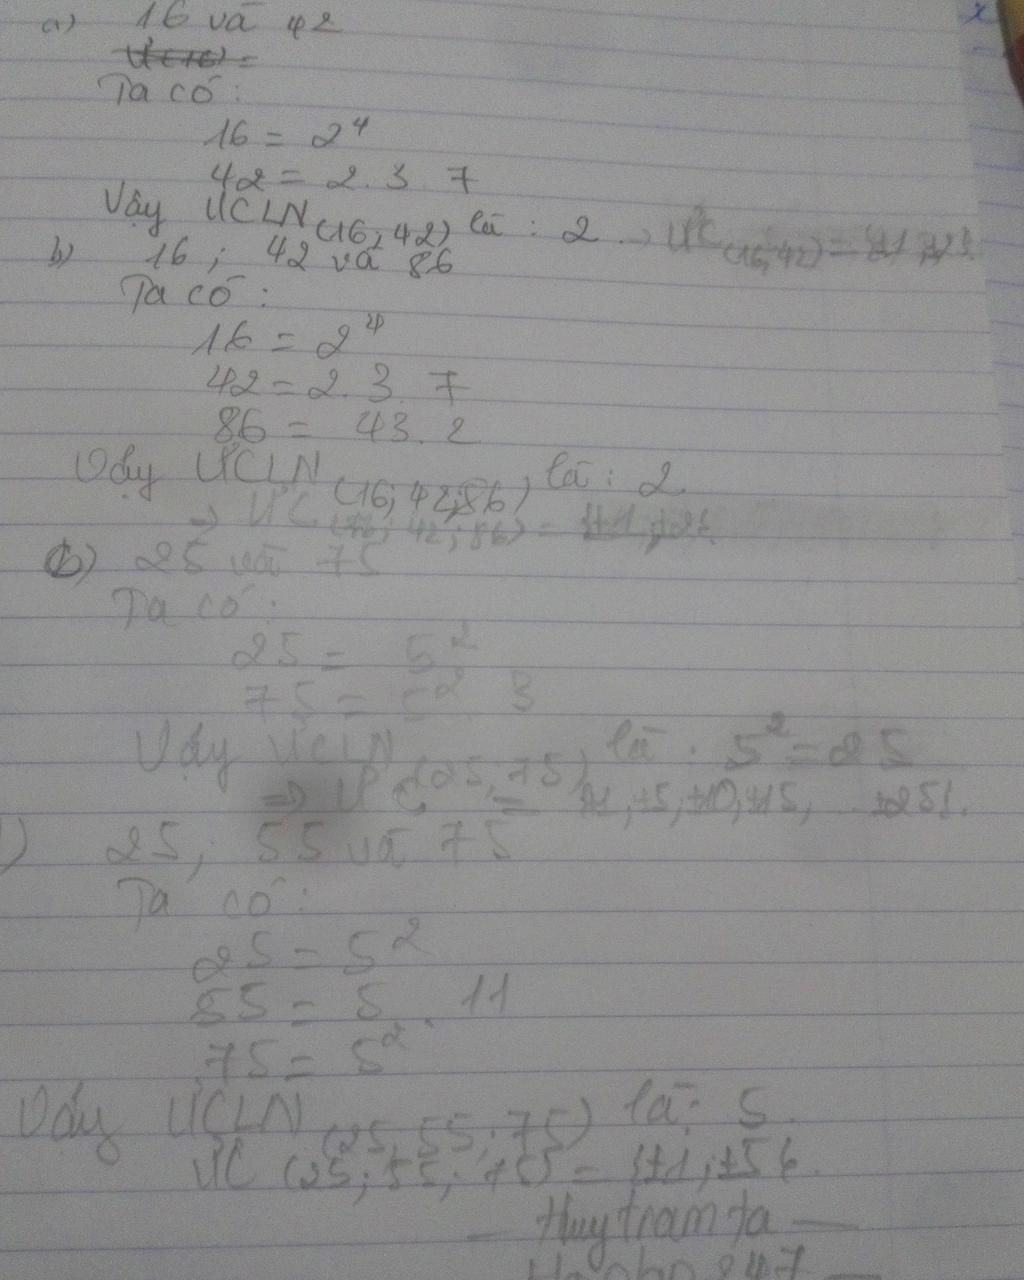 a) 16 và 42
Ư(16) =
Ta có :
16 = 2⁴
42 = 2. 3. 7
Vậy ƯCLN (16; 42) là : 2 → ƯC (16; 42) = {±1; ±2}
b) 16 ; 42 và 86
Ta có :
16 = 2⁴
42 = 2. 3. 7
86 = 43. 2
Vậy ƯCLN (16; 42; 86) là : 2
→ ƯC (16; 42; 86) = {±1; ±2}
25 và 75
Ta có :
25 = 5²
75 = 5². 3
Vậy ƯCLN (25; 75) là : 5² = 25
⇒ ƯC = ±1, ±5, ±10, ±15, ±25}.
) 25, 55 và 75
Ta có :
25 = 5²
55 = 5. 11
75 = 5²
Vậy ƯCLN (25; 55; 75) là : 5.
ƯC (25; 55; 75) = {±1; ±5}.
— Huytramta —